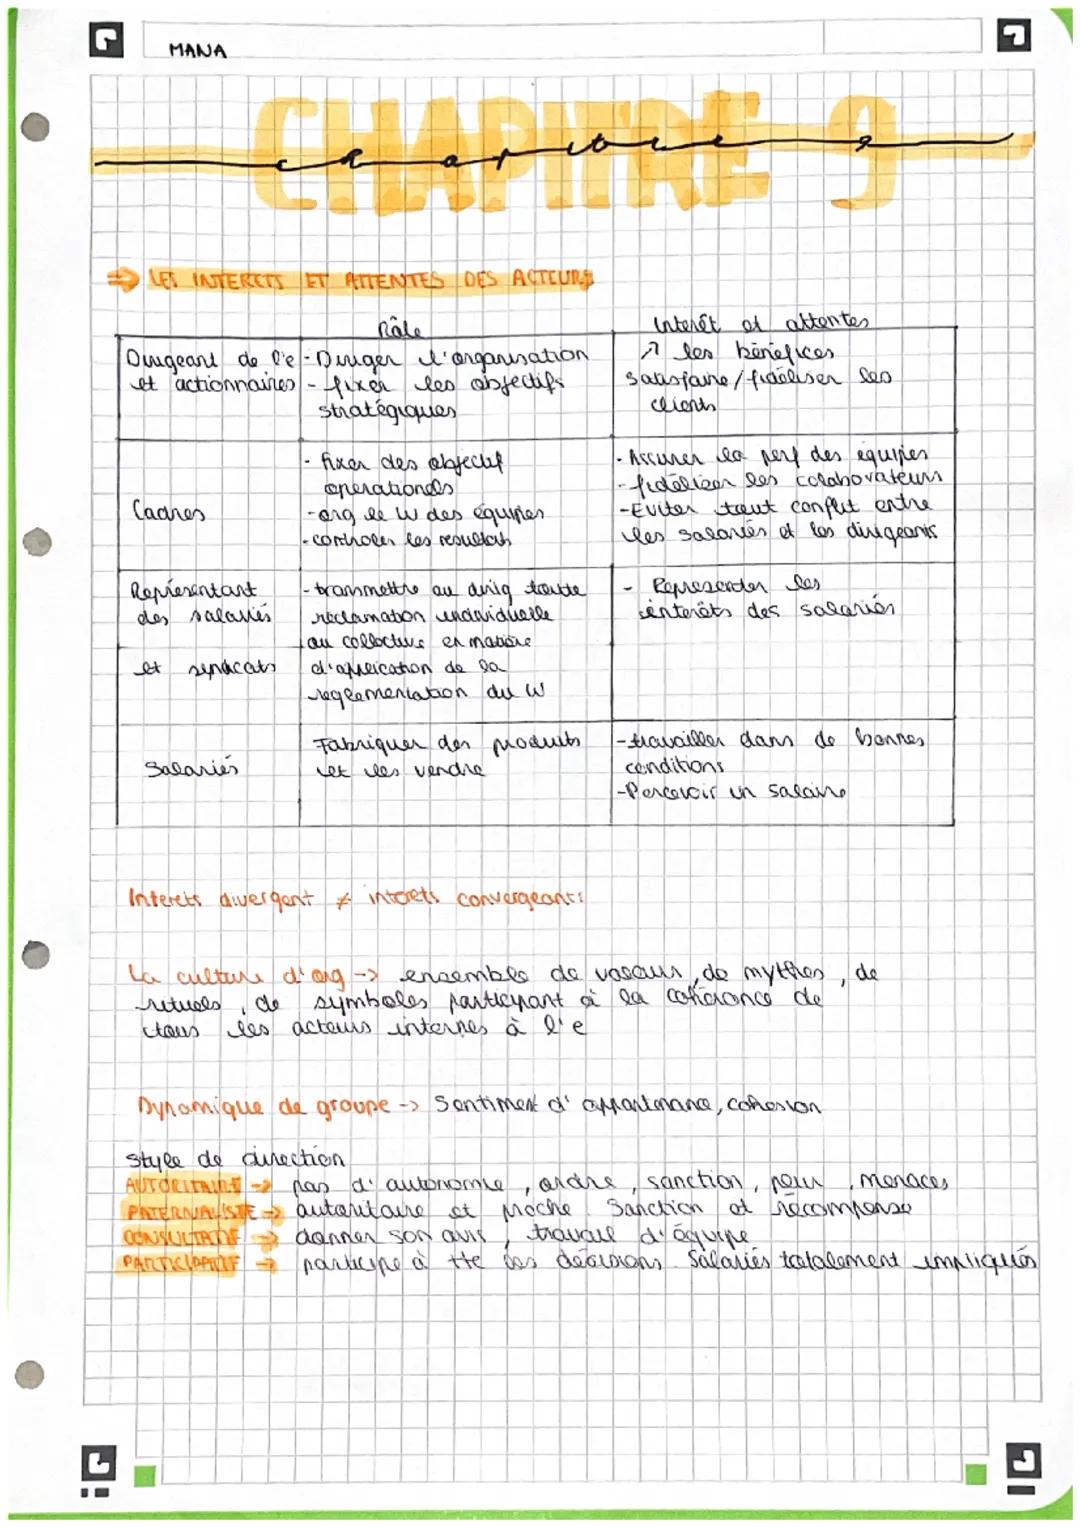 MANA
CHAPITRE 9
chapitre 9
⇒ LES INTERETS ET ATTENTES DES ACTEURS
Rôle
Interêt et attentes
Dirigeant de l'e
et actionnaires
- Diriger l'organisation
- fixer les objectifs
stratégiques
↗ les bénéfices
satisfaire/fidéliser les
clients
Cadres
- fixer des objectif
operationels
- org le W des équipes
- controler les resultats
- Assurer la perf des équipes
- fidéliser les colaborateurs
- Eviter tout conflit entre
les salariés et les dirigeants
Représentant
des salariés
et syndicats
- transmettre au dirig toute
réclamation individuelle
ou collective en matière
d'application de la
reglementation du W
- Representer les
interêts des salariés
Salariés
Fabriquer des produits
et les vendre
- travailler dans de bonnes
conditions
- Percevoir un salaire
Interets divergent ≠ interets convergeants
La culture d'org -> ensemble de valeurs, de mythes, de
rituels, de symboles participant à la cohérence de
tous les acteurs internes à l'e
Dynamique de groupe -> Sentiment d'appartenance, cohesion
style de direction
AUTORITAIRE -> pas d'autonomie, ordre, sanction, peur, menaces
PATERNALISTE -> autoritaire et proche. Sanction et récompense
CONSULTATIF -> donner son avis, travail d'équipe
PARTICIPATIF -> participe à tte les décisions. Salariés totalement impliqués